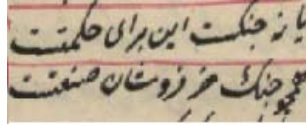 یا نه جنگست این برای حکمتست
همچو جنگ خر فروشان صنعتست